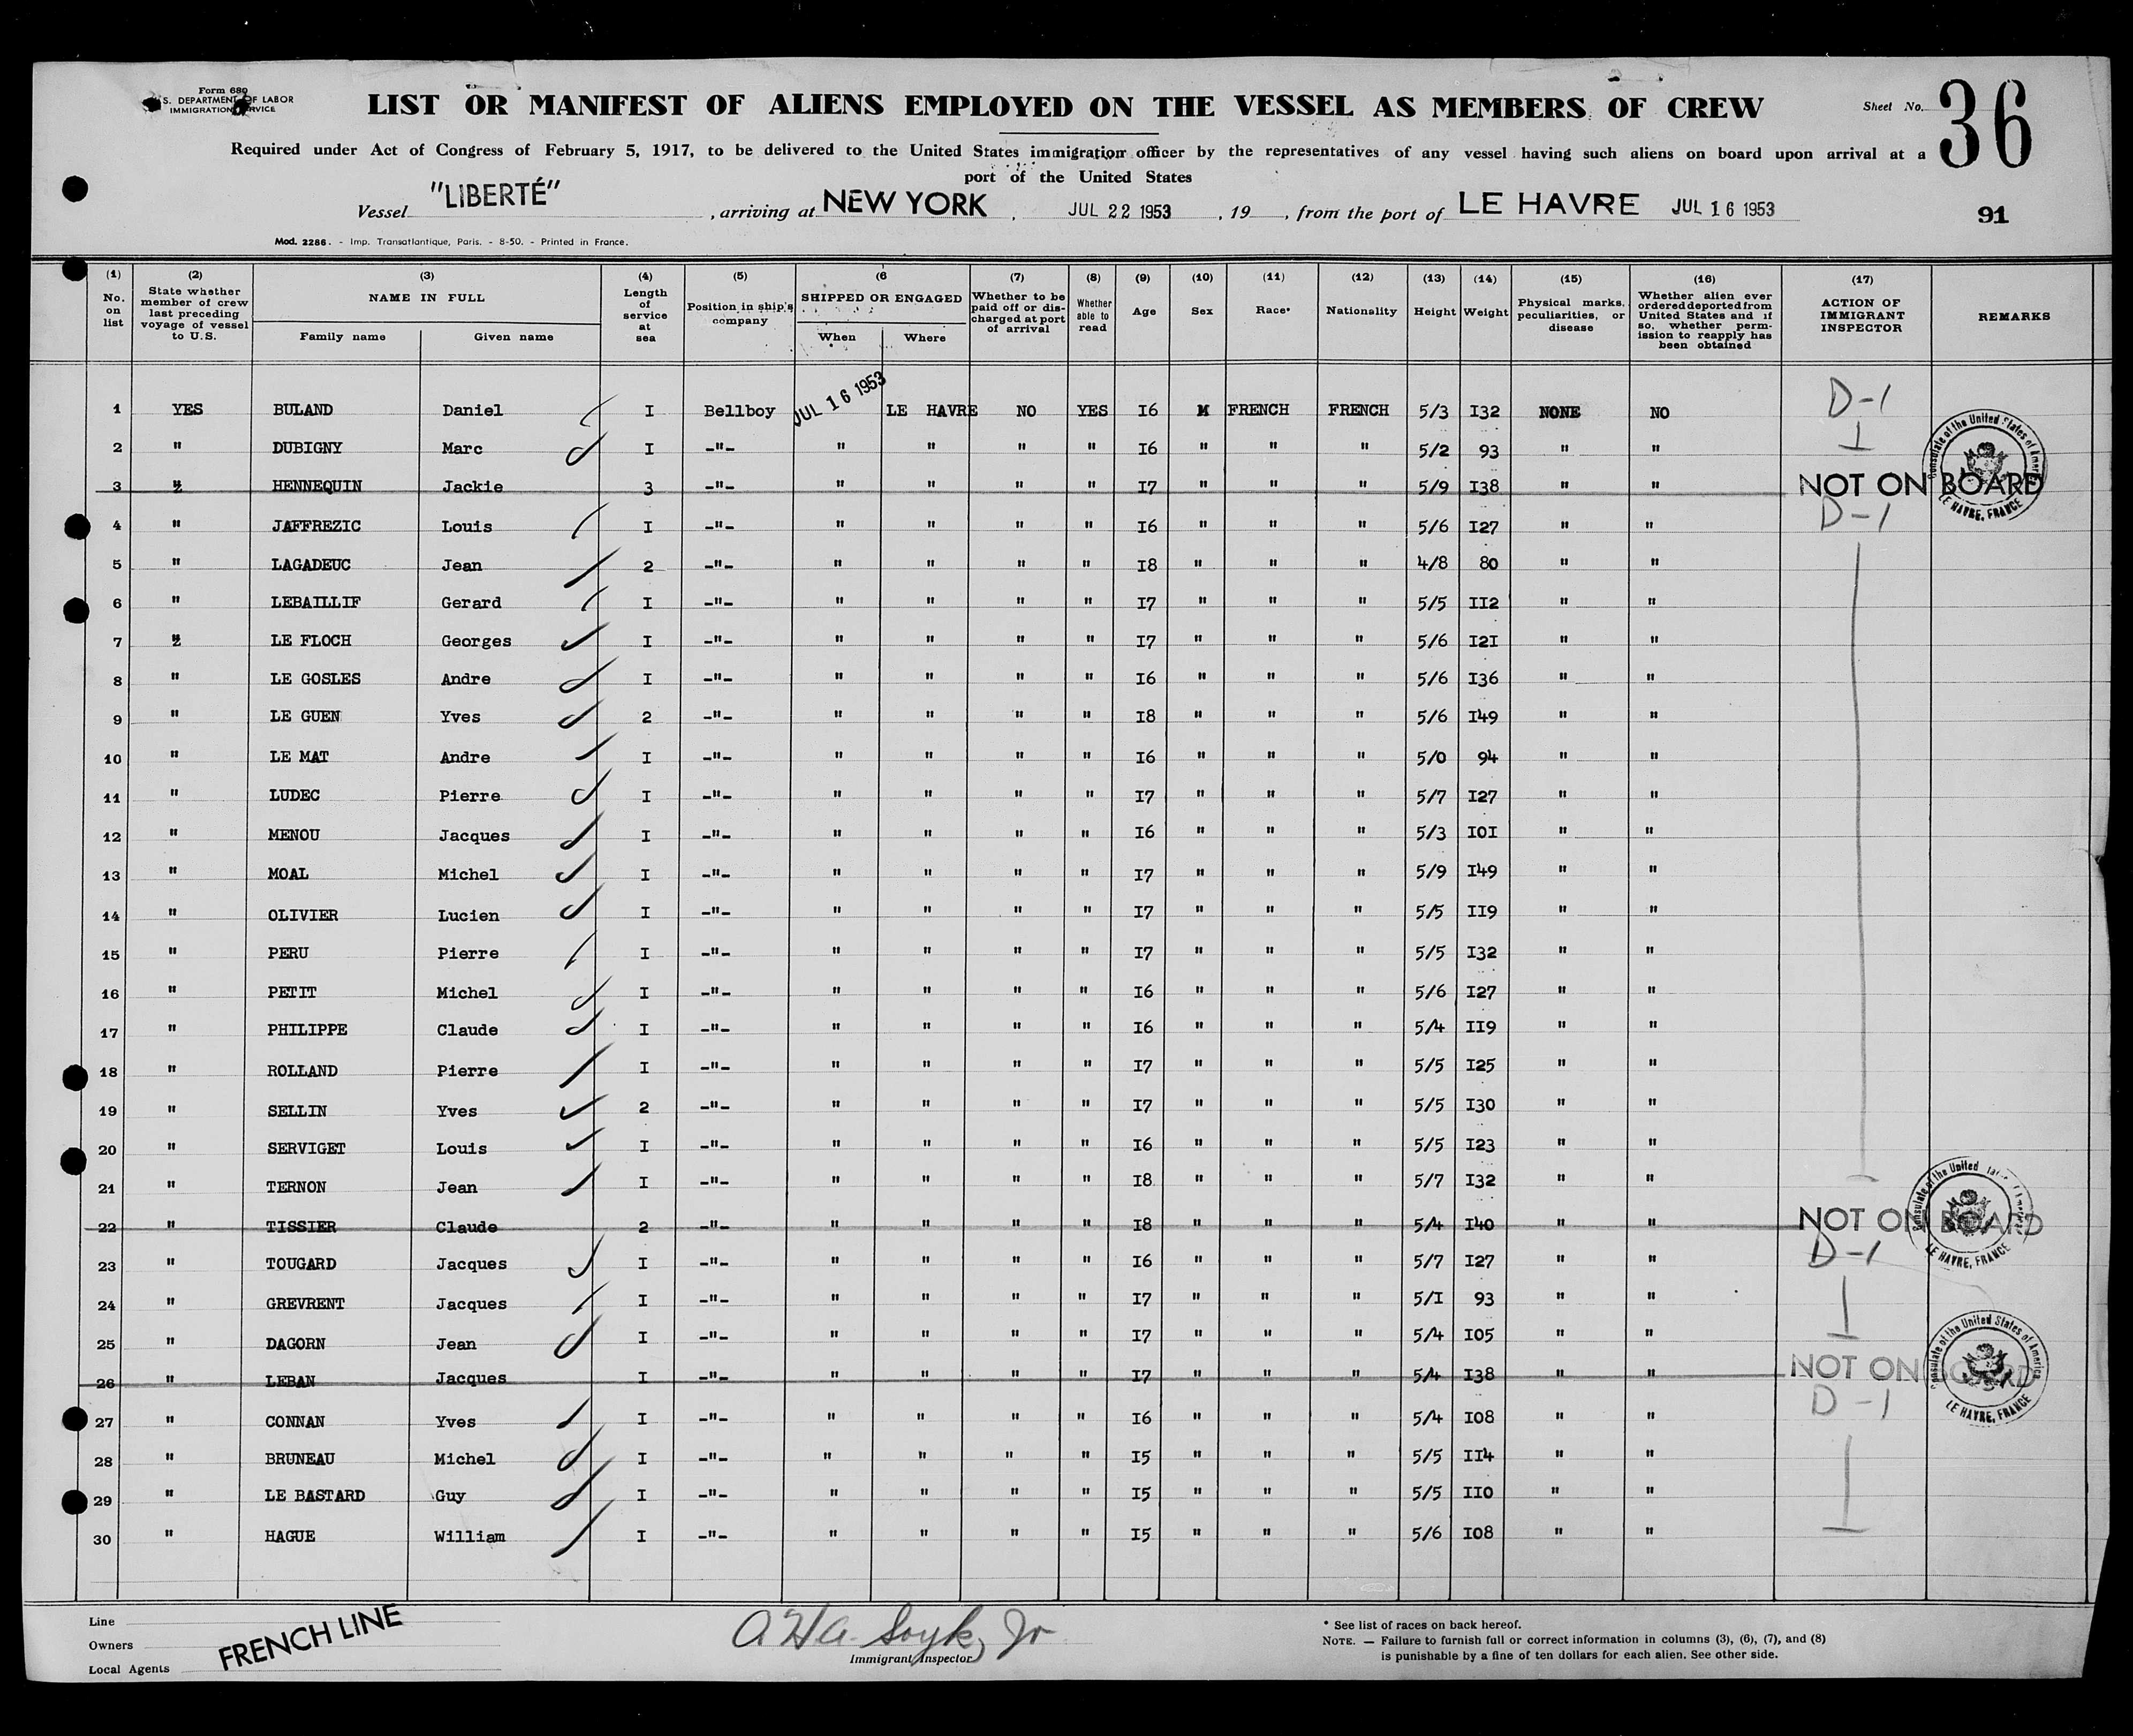 Form 680
S. DEPARTMENT OF LABOR
IMMIGRATION SERVICE
LIST OR MANIFEST OF ALIENS EMPLOYED ON THE VESSEL AS MEMBERS OF CREW
Sheet No. 36
Required under Act of Congress of February 5, 1917, to be delivered to the United States immigration officer by the representatives of any vessel having such aliens on board upon arrival at a
port of the United States
Vessel "LIBERTÉ", arriving at NEW YORK, JUL 22 1953, 19 , from the port of LE HAVRE JUL 16 1953
91
Mod. 2286. - Imp. Transatlantique, Paris. - 8-50. - Printed in France.
(1) No. on list
(2) State whether member of crew last preceding voyage of vessel to U.S.
(3) NAME IN FULL Family name Given name
(4) Length of service at sea
(5) Position in ship's company
(6 SHIPPED OR ENGAGED When Where
(7) Whether to be paid off or discharged at port of arrival
(8) Whether able to read
(9) Age
(10) Sex
(11) Race*
(12) Nationality
(13) Height
(14) Weight
(15) Physical marks, peculiarities, or disease
(16) Whether alien ever ordered deported from United States and if so, whether permission to reapply has been obtained
(17) ACTION OF IMMIGRANT INSPECTOR
REMARKS
1 YES BULAND Daniel I Bellboy JUL 16 1953 LE HAVRE NO YES I6 M FRENCH FRENCH 5/3 I32 NONE NO D-1
2 " DUBIGNY Marc I -"- " " " " I6 " " " 5/2 93 " "
3 " HENNEQUIN Jackie 3 -"- " " " " I7 " " " 5/9 I38 " " NOT ON BOARD
4 " JAFFREZIC Louis I -"- " " " " I6 " " " 5/6 I27 " " D-1
5 " LAGADEUC Jean 2 -"- " " " " I8 " " " 4/8 80 " "
6 " LEBAILLIF Gerard I -"- " " " " I7 " " " 5/5 II2 " "
7 " LE FLOCH Georges I -"- " " " " I7 " " " 5/6 I2I " "
8 " LE GOSLES Andre I -"- " " " " I6 " " " 5/6 I36 " "
9 " LE GUEN Yves 2 -"- " " " " I8 " " " 5/6 I49 " "
10 " LE MAT Andre I -"- " " " " I6 " " " 5/0 94 " "
11 " LUDEC Pierre I -"- " " " " I7 " " " 5/7 I27 " "
12 " MENOU Jacques I -"- " " " " I6 " " " 5/3 IOI " "
13 " MOAL Michel I -"- " " " " I7 " " " 5/9 I49 " "
14 " OLIVIER Lucien I -"- " " " " I7 " " " 5/5 II9 " "
15 " PERU Pierre I -"- " " " " I7 " " " 5/5 I32 " "
16 " PETIT Michel I -"- " " " " I6 " " " 5/6 I27 " "
17 " PHILIPPE Claude I -"- " " " " I6 " " " 5/4 II9 " "
18 " ROLLAND Pierre I -"- " " " " I7 " " " 5/5 I25 " "
19 " SELLIN Yves 2 -"- " " " " I7 " " " 5/5 I30 " "
20 " SERVIGET Louis I -"- " " " " I6 " " " 5/5 I23 " "
21 " TERNON Jean I -"- " " " " I8 " " " 5/7 I32 " "
22 " TISSIER Claude 2 -"- " " " " I8 " " " 5/4 I40 " " NOT ON BOARD
23 " TOUGARD Jacques I -"- " " " " I6 " " " 5/7 I27 " " D-1
24 " GREVRENT Jacques I -"- " " " " I7 " " " 5/I 93 " "
25 " DAGORN Jean I -"- " " " " I7 " " " 5/4 I05 " "
26 " LEBAN Jacques I -"- " " " " I7 " " " 5/4 I38 " " NOT ON BOARD
27 " CONNAN Yves I -"- " " " " I6 " " " 5/4 I08 " " D-1
28 " BRUNEAU Michel I -"- " " " " I5 " " " 5/5 II4 " "
29 " LE BASTARD Guy I -"- " " " " I5 " " " 5/5 II0 " "
30 " HAGUE William I -"- " " " " I5 " " " 5/6 I08 " "
Consulate of the United States of America
LE HAVRE, FRANCE
Consulate of the United States of America
LE HAVRE, FRANCE
Consulate of the United States of America
LE HAVRE, FRANCE
Line
Owners
Local Agents
FRENCH LINE
Immigrant Inspector
* See list of races on back hereof.
NOTE. — Failure to furnish full or correct information in columns (3), (6), (7), and (8)
is punishable by a fine of ten dollars for each alien. See other side.